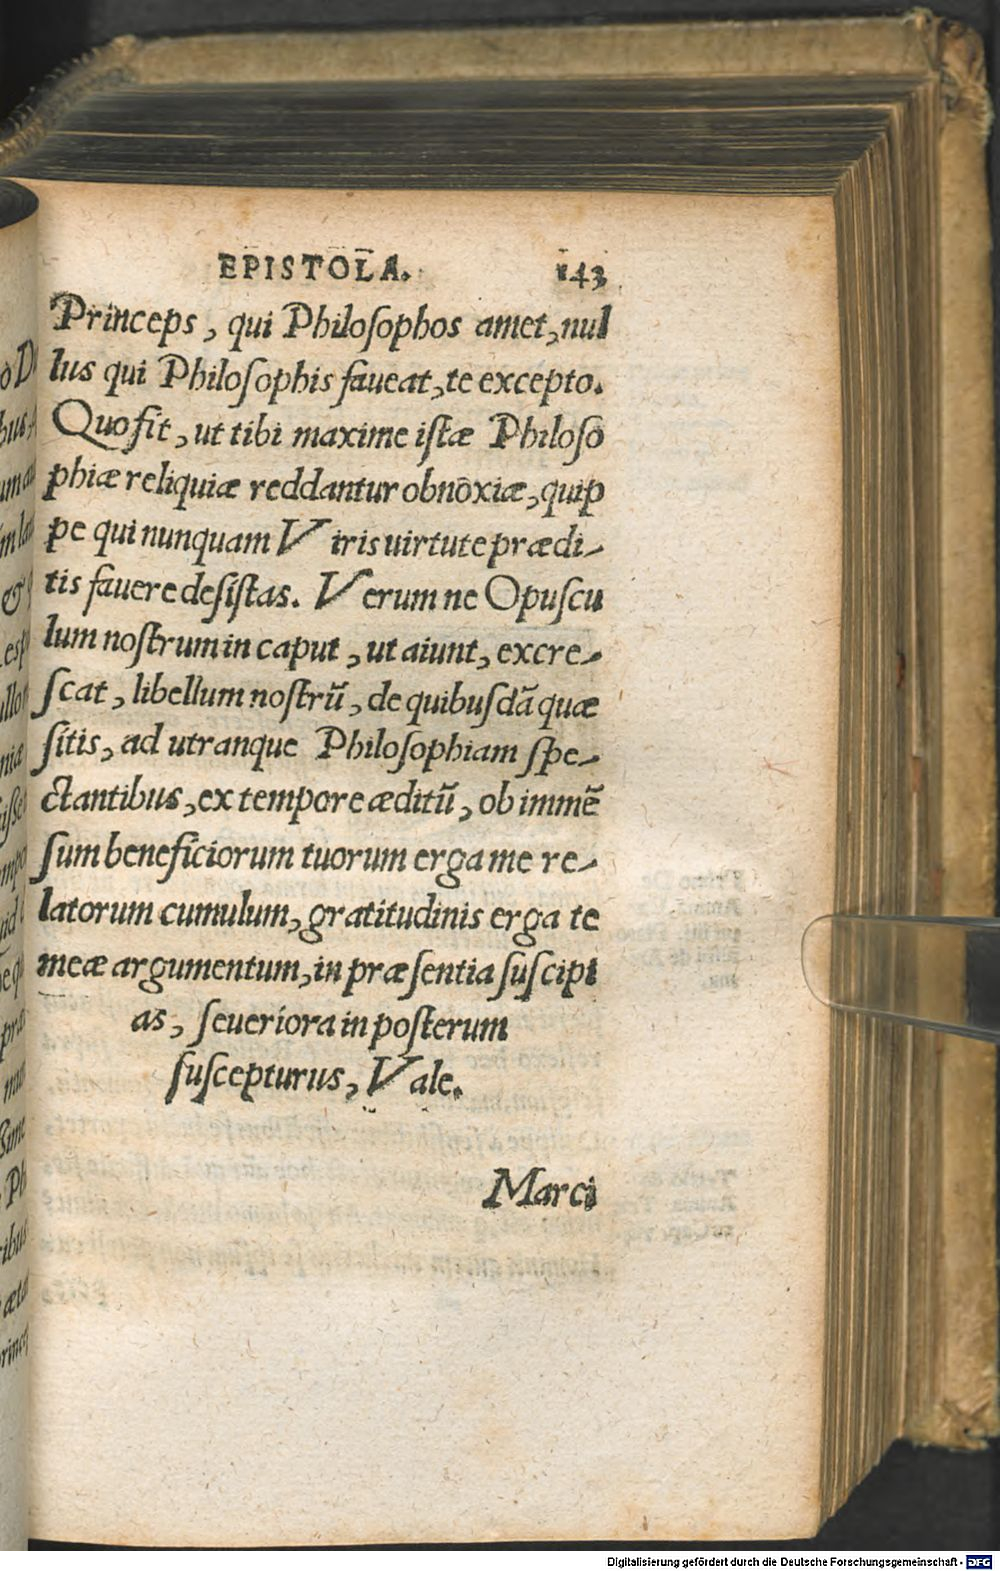 EPISTOLA. 143
Princeps, qui Philosophos amet, nul
lus qui Philosophis faueat, te excepto.
Quo fit, ut tibi maxime istæ Philoso
phiæ reliquiæ reddantur obnoxiæ, quip
pe qui nunquam Viris uirtute prædi-
tis fauere desistas. Verum ne Opuscu
lum nostrum in caput, ut aiunt, excre-
scat, libellum nostrū, de quibusdā quæ
sitis, ad utranque Philosophiam spe-
ctantibus, ex tempore æditū, ob immē
sum beneficiorum tuorum erga me re-
latorum cumulum, gratitudinis erga te
meæ argumentum, in præsentia suscipi
as, seueriora in posterum
suscepturus, Vale.
Marci
Digitalisierung gefördert durch die Deutsche Forschungsgemeinschaft - DFG